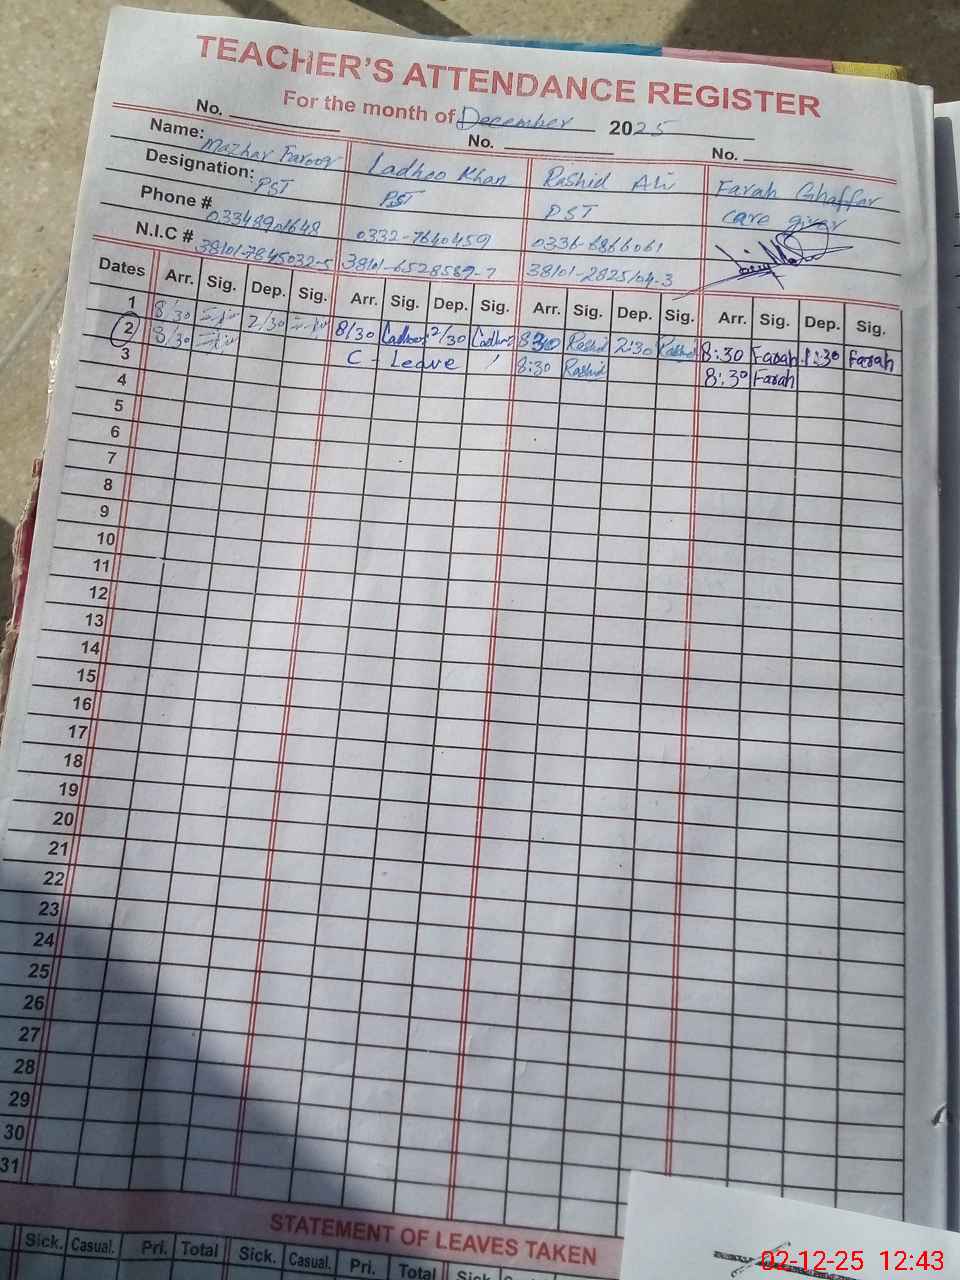 TEACHER'S ATTENDANCE REGISTER
For the month of December 2025
No. No. No.
Name: Mazhar Farooq Ladhoo Khan Rashid Ali Farah Ghaffar
Designation: PST PST PST care giver
Phone # 0332-7640459 0336-6866061
N.I.C # 38101-7845032-5 38101-6528589-7 38101-2825104-3
Dates Arr. Sig. Dep. Sig. Arr. Sig. Dep. Sig. Arr. Sig. Dep. Sig. Arr. Sig. Dep. Sig.
1 8/30 2/30 8/30 Ladhoo 2/30 Ladhoo 8:30 Rashid 2:30 Rashid 8:30 Farah 1:30 Farah
2 8/30 C - Leave 8:30 Rashid 8:30 Farah
3
4
5
6
7
8
9
10
11
12
13
14
15
16
17
18
19
20
21
22
23
24
25
26
27
28
29
30
31
STATEMENT OF LEAVES TAKEN
Sick. Casual. Pri. Total Sick. Casual. Pri. Total Sick.
02-12-25 12:43